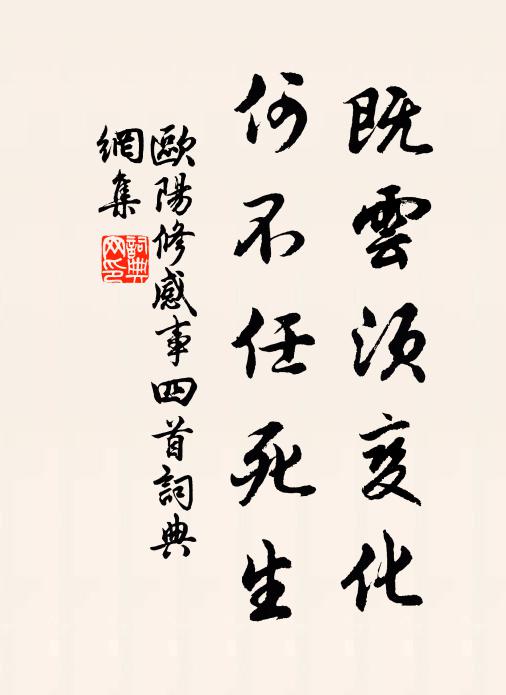 既雲須变化
何不任死生
歐陽修感事四首詞典
網集
詞典网印